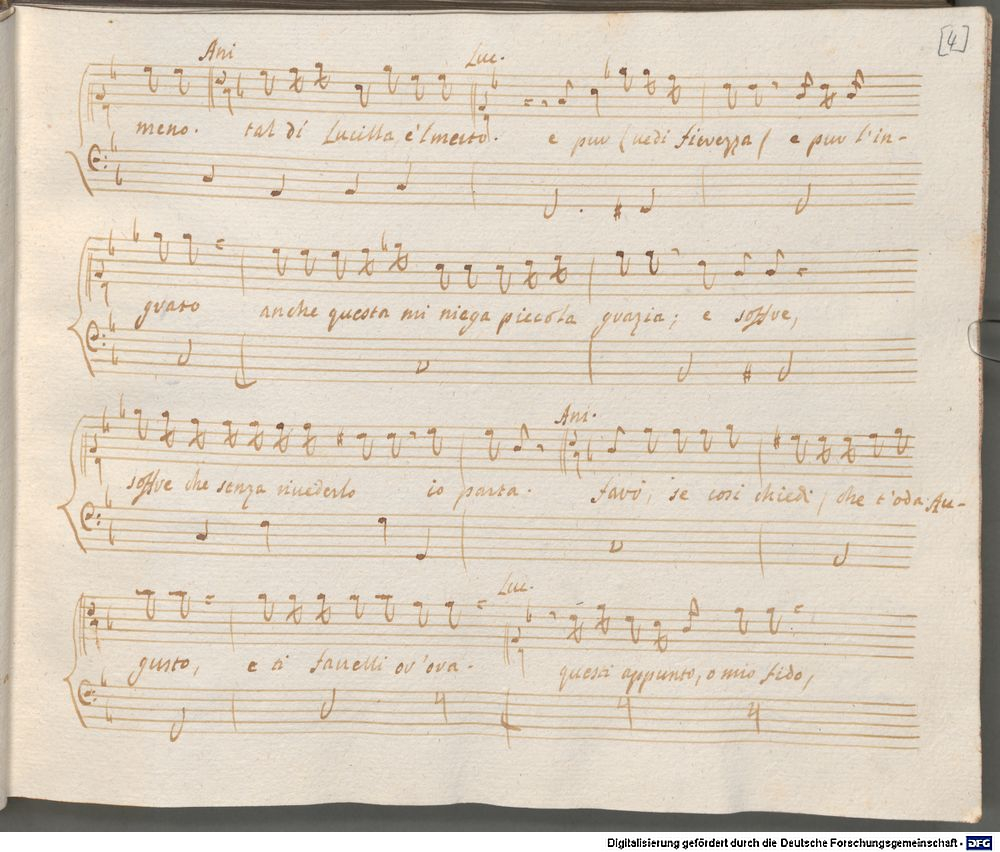 [4]
Ani Luc.
meno. tal di Lucilla, è'l merto. e pur (vedi fierezza) e pur l'in-
grato anche questa mi niega piccola grazia; e soffre,
Ani.
soffre che senza rivederlo io parta. farò, se così chiedi, che t'oda Au-
Luc.
gusto, e ti favelli or'ora. questi appunto, o mio fido,
Digitalisierung gefördert durch die Deutsche Forschungsgemeinschaft - DFG